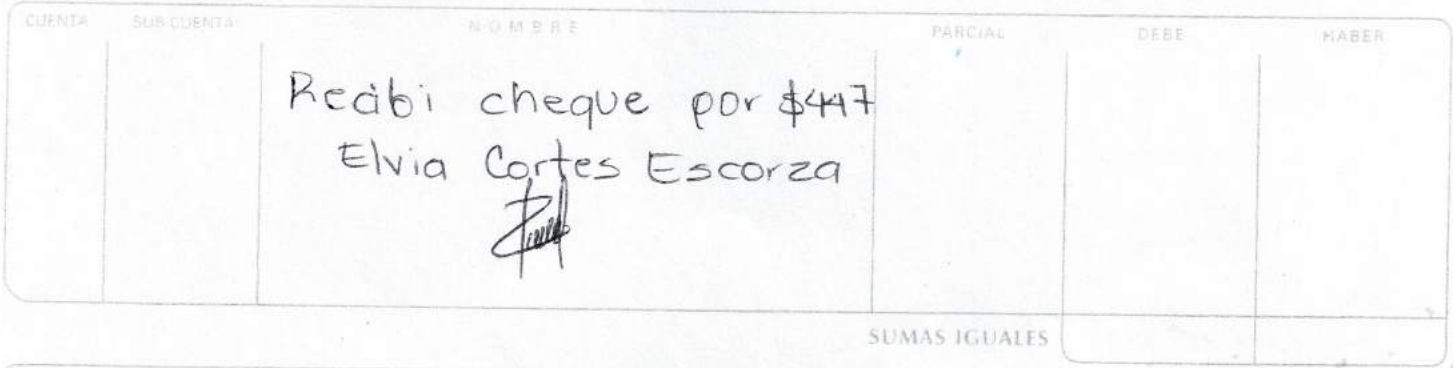 CUENTA SUB-CUENTA NOMBRE PARCIAL DEBE HABER
Recibi cheque por $447
Elvia Cortes Escorza
SUMAS IGUALES